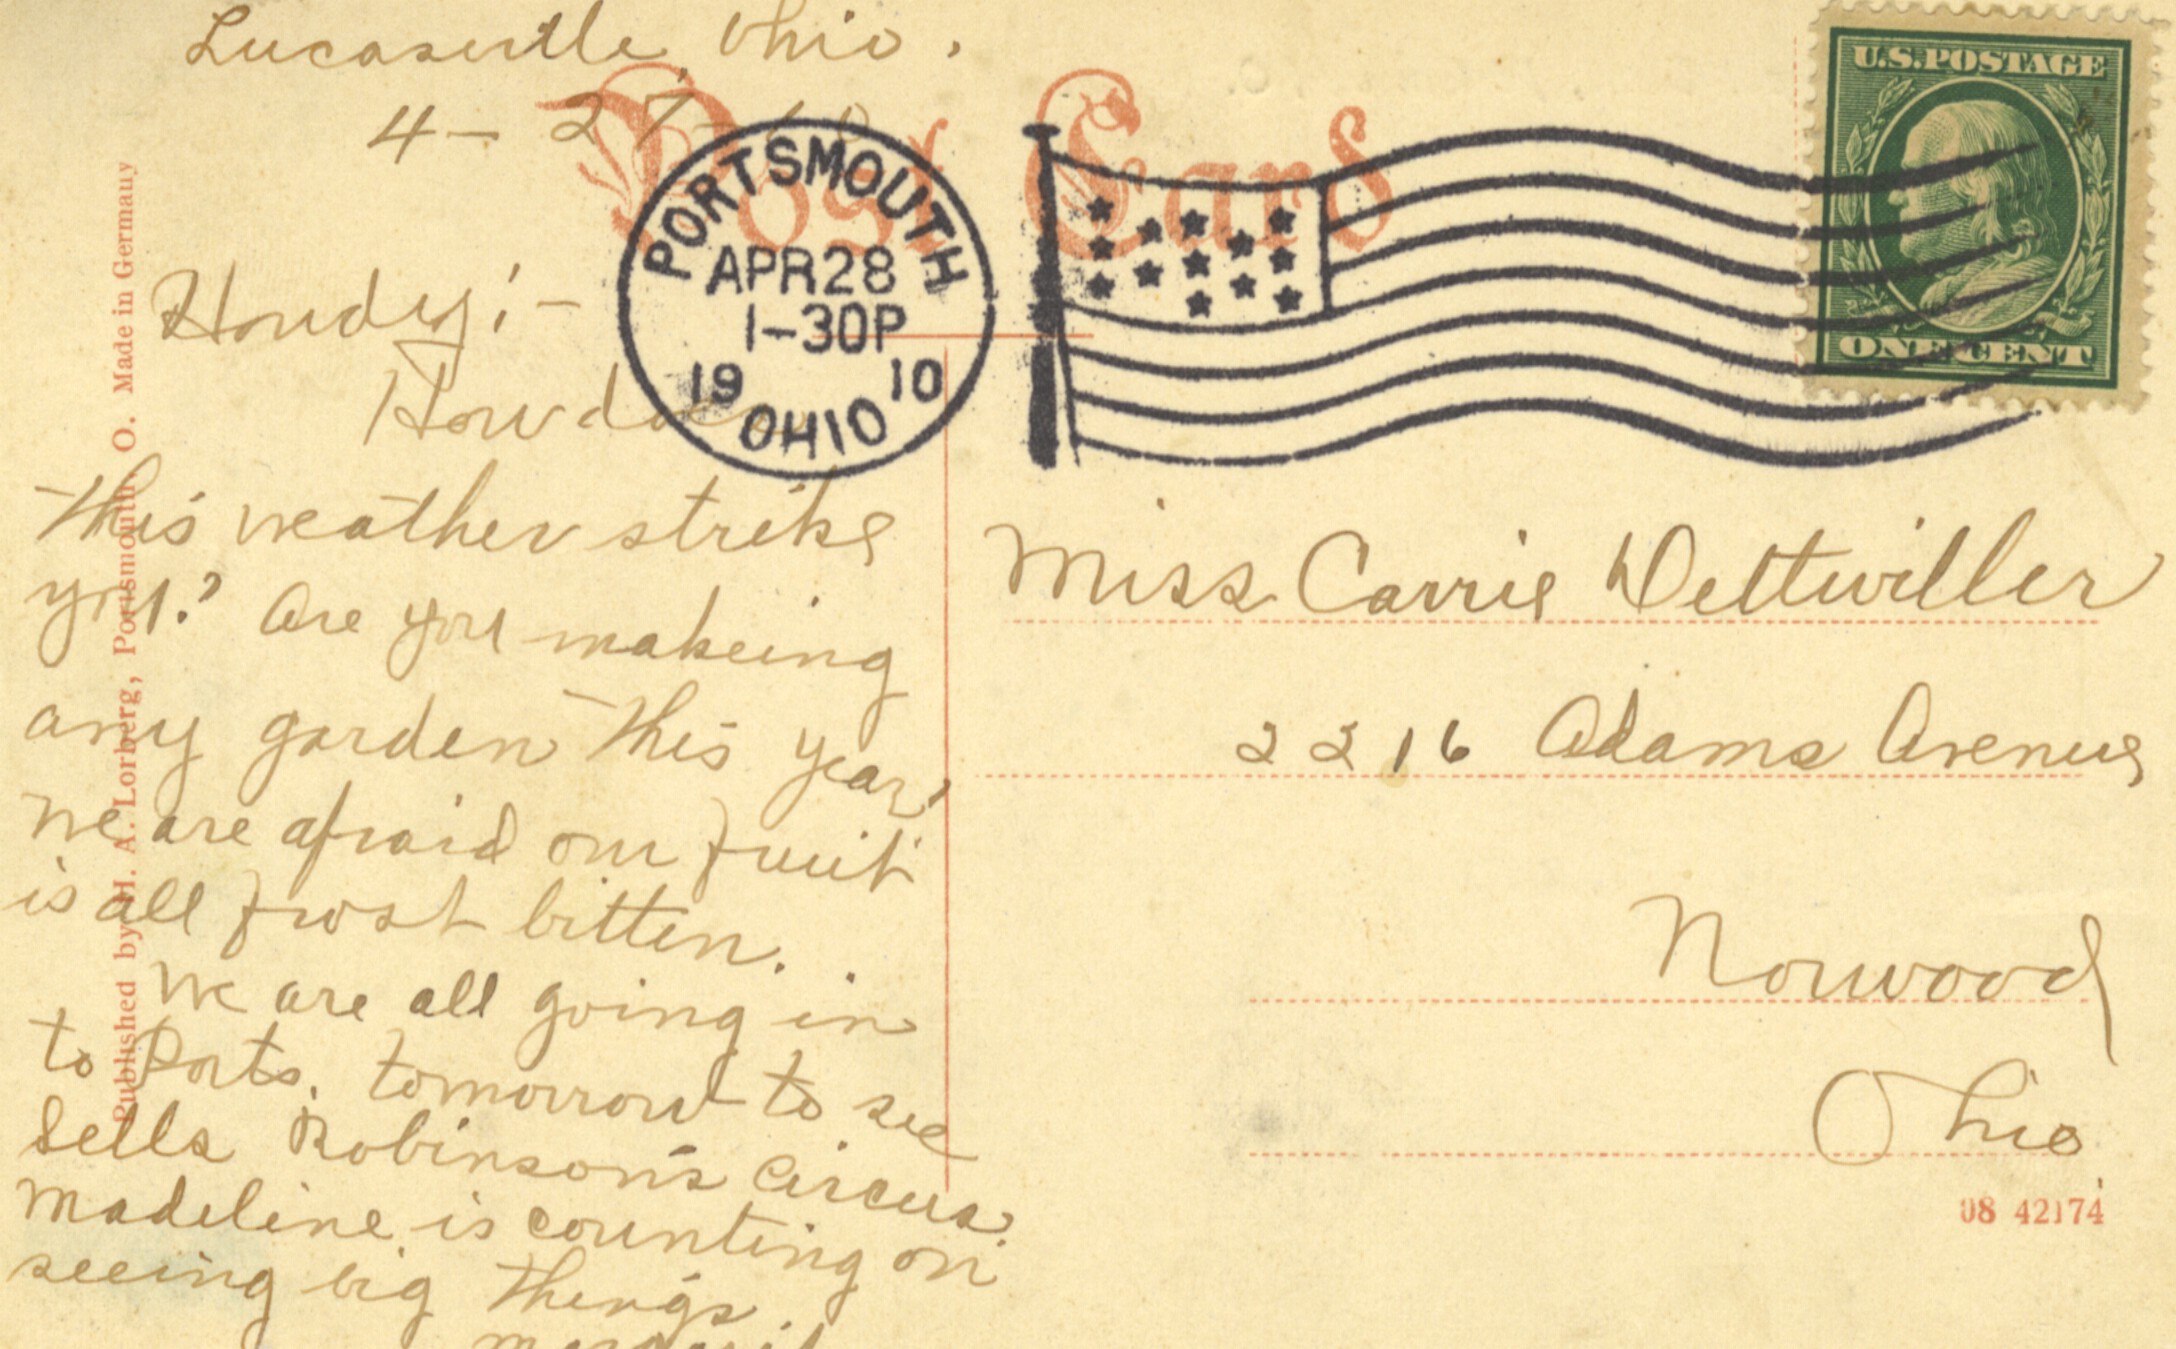 Lucasville, Ohio.
4-27-10
Post Card
PORTSMOUTH
APR 28
1-30P
19 10
OHIO
U.S. POSTAGE
ONE CENT
Howdy! -
How does
this weather strike
you? Are you makeing
any garden this year?
We are afraid our fruit
is all frost bitten.
We are all going in
to Ports. tomorrow to see
Sells Robinson's Circus.
Madeline is counting on
seeing big things.
Miss Carrie Dettwiller
2216 Adams Avenue
Norwood
Ohio.
08 42174
Published by H. A. Lorberg, Portsmouth, O. Made in Germany